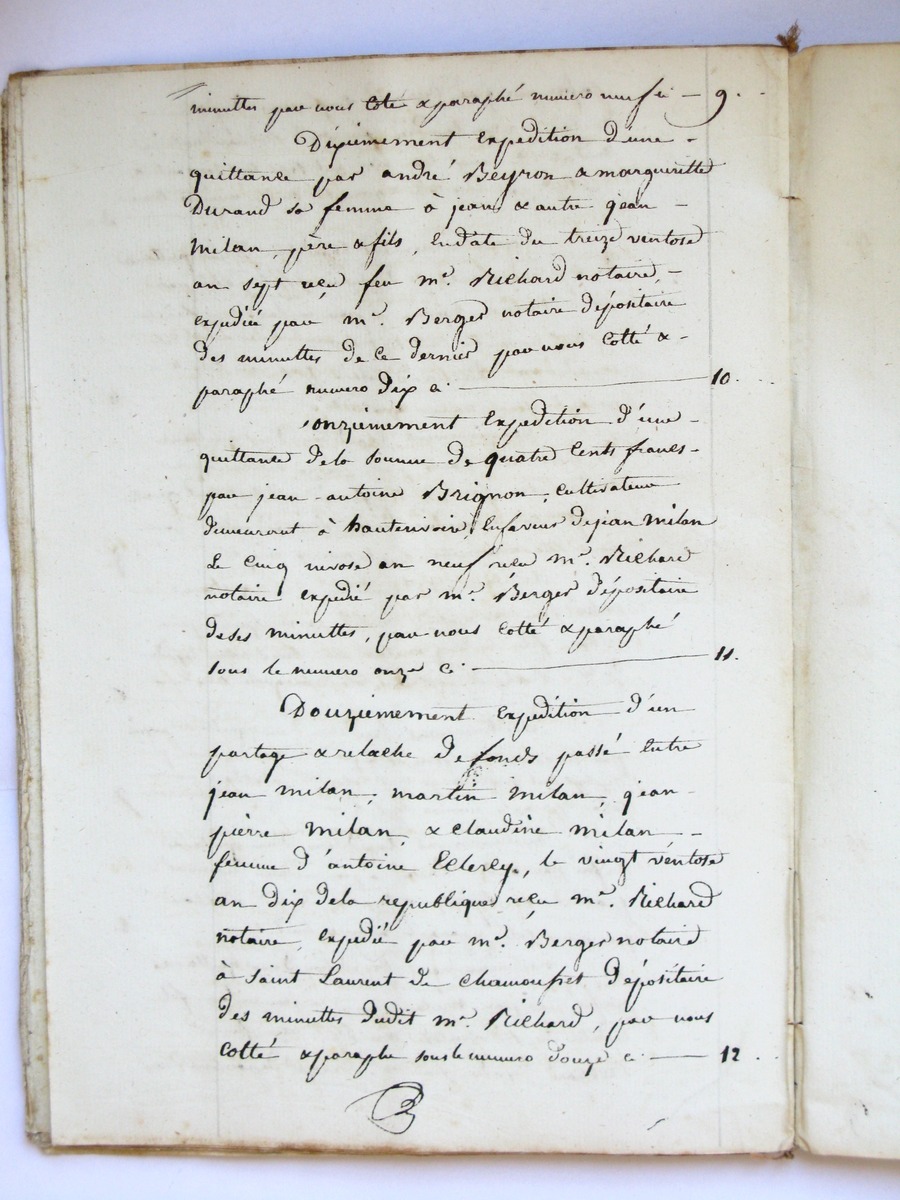 minuttes par nous coté & paraphé numero neuf ci — 9.
Dixiemement Expedition d'une -
quittance par andré Beyron & margueritte
Durand sa femme à jean & autre jean -
Milan, père & fils, en date du treize ventose
an sept reçu feu me. Richard notaire, -
expediée par me. Berger notaire dépositaire
des minuttes de ce dernier par nous Cotté & -
paraphé numero dix ci. — 10.
onziemement Expedition d'une -
quittance de la somme de quatre Cents francs -
par jean-antoine Brignon, Cultivateur
demeurant à hauterivoire, en faveur de jean milan
Le Cinq nivose an neuf reçu me. Richard
notaire expedié par me. Berger dépositaire
de ses minuttes, par nous Cotté & paraphé
sous le numero onze ci. — 11.
Douziemement Expédition d'un
partage & relache de fonds passé Entre
jean milan, martin milan, jean -
pierre milan, & claudine milan -
femme d'antoine Ellerey, le vingt ventose
an dix de la republique reçu me. Richard
notaire, Expedié par me. Berger notaire
à Saint Laurent de chamousset dépositaire
des minuttes dudit me. Richard, par nous
Cotté & paraphe sous le numero douze ci — 12.